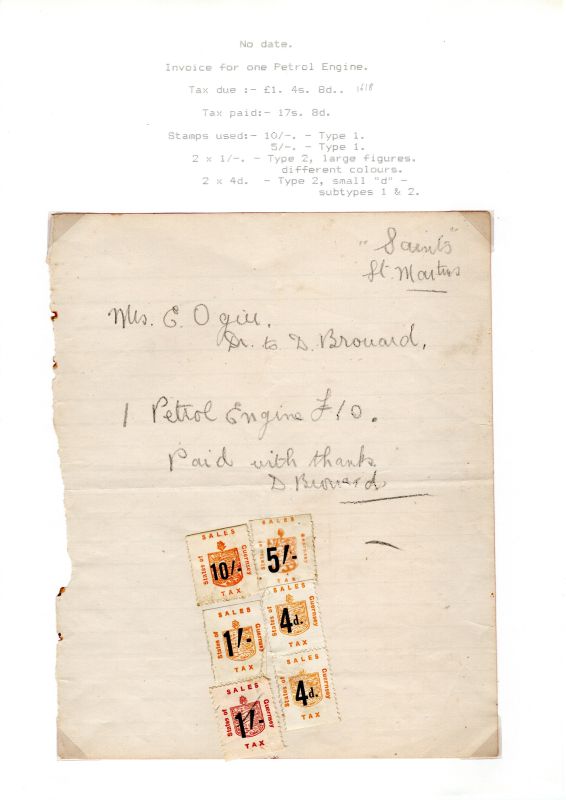 No date.
Invoice for one Petrol Engine.
Tax due :- £1. 4s. 8d..
Tax paid:- 17s. 8d.
Stamps used:- 10/-. - Type 1.
5/-. - Type 1.
2 x 1/-. - Type 2, large figures.
different colours.
2 x 4d. - Type 2, small "d" -
subtypes 1 & 2.
"Saints"
St. Martins
Mrs. E. Ogier.
Dr. to D. Brouard.
1 Petrol Engine £10.
Paid with thanks
D Brouard
SALES
States of
10/-
Guernsey
TAX
SALES
States of
5/-
Guernsey
TAX
SALES
States of
1/-
Guernsey
TAX
SALES
States of
4d.
Guernsey
TAX
SALES
States of
1/-
Guernsey
TAX
SALES
States of
4d.
Guernsey
TAX